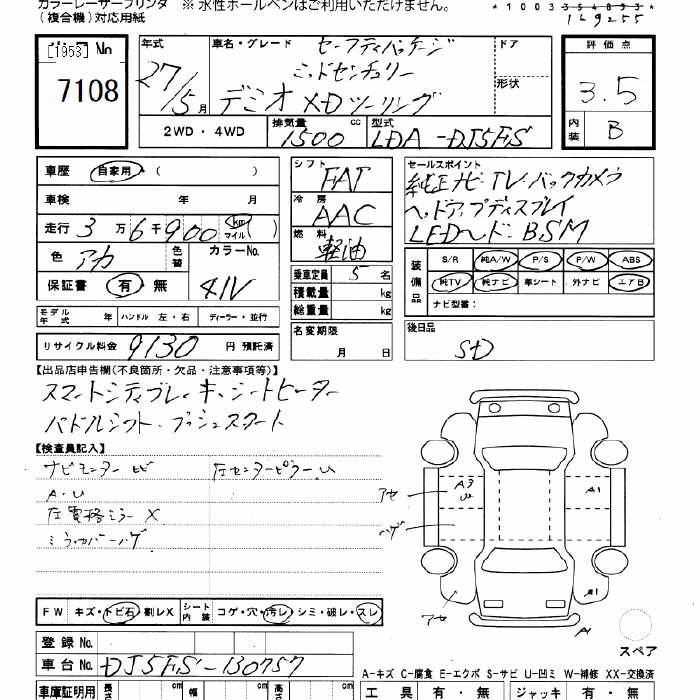 カラーレーザープリンタ ※ 水性ボールペンはご利用いただけません。
(複合機)対応用紙
*1003354893*
169255
[1953] No
7108
年式 27/5月
車名・グレード セーフティパッケージ
ミッドセンチュリー
デミオ XDツーリング
ドア
形状
2WD・4WD
排気量 1500 cc
型式 LDA-DJ5FS
評価点
3.5
内装 B
車歴 自家用 ( )
車検 年 月
走行 3万6千900 (km マイル)
色 アカ 色替 カラーNo. 41V
保証書 有・無
モデル年式 年 ハンドル 左・右 ディーラー・並行
リサイクル料金 9130 円 預託済
シフト FAT
冷房 AAC
燃料 軽油
乗車定員 5 名
積載量 kg
総重量 kg
名変期限
月 日
セールスポイント
純正ナビ・TV・バックカメラ
ヘッドアップディスプレイ
LEDヘッド・BSM
装備品 S/R 純A/W P/S P/W ABS
純TV 純ナビ 革シート 外ナビ エアB
ナビ型番:
後日品
SD
【出品店申告欄(不良箇所・欠品・注意事項等)】
スマートシティブレーキ・シートヒーター
パドルシフト・プッシュスタート
【検査員記入】
ナビモニター ヒビ 左センターピラーU
A・U
左質格ミラー X
ミラーカバーハゲ
アセ A3 U A1
ハゲ
アセ A1
A
FW キズ・トビ石・割レX シート内装 コゲ・穴・汚レ・シミ・破レ・スレ
スペア
登録 No.
車台 No. DJ5FS-130757
A-キズ C-腐食 E-エクボ S-サビ U-凹ミ W-補修 XX-交換済
車庫証明用 長さ cm 幅 cm 高さ cm
工具 有・無 ジャッキ 有・無